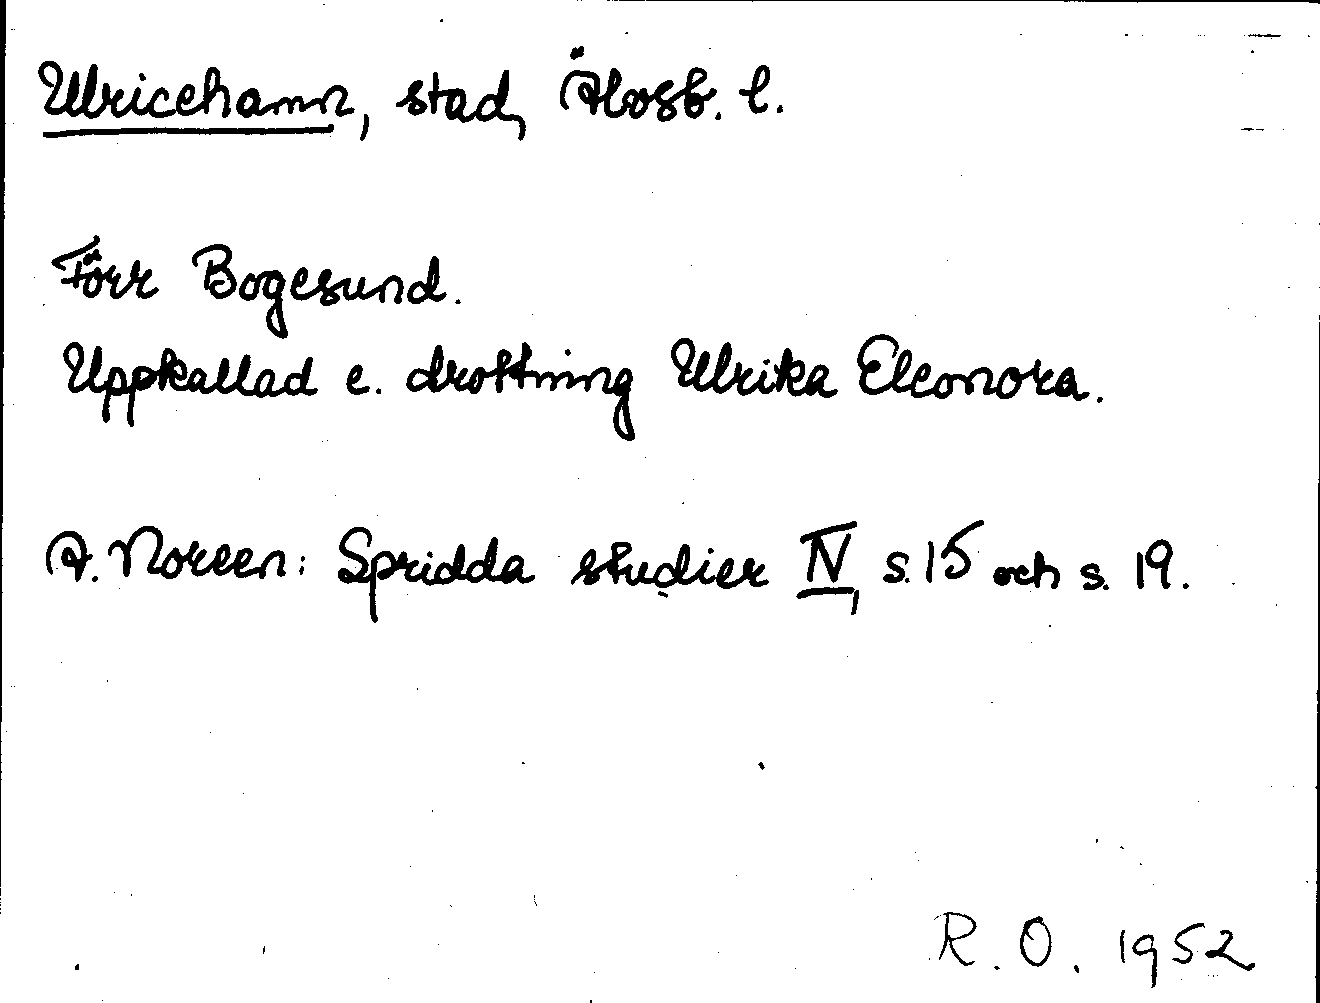 Ulricehamn, stad, Älvsb. l.
Förr Bogesund.
Uppkallad e. drottning Ulrika Eleonora.
A. Noreen: Spridda studier IV, s. 15 och s. 19.
R. O. 1952